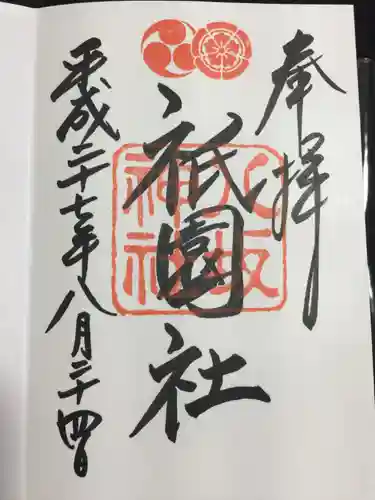 奉拝
祇園社
八坂神社
平成二十七年八月二十四日